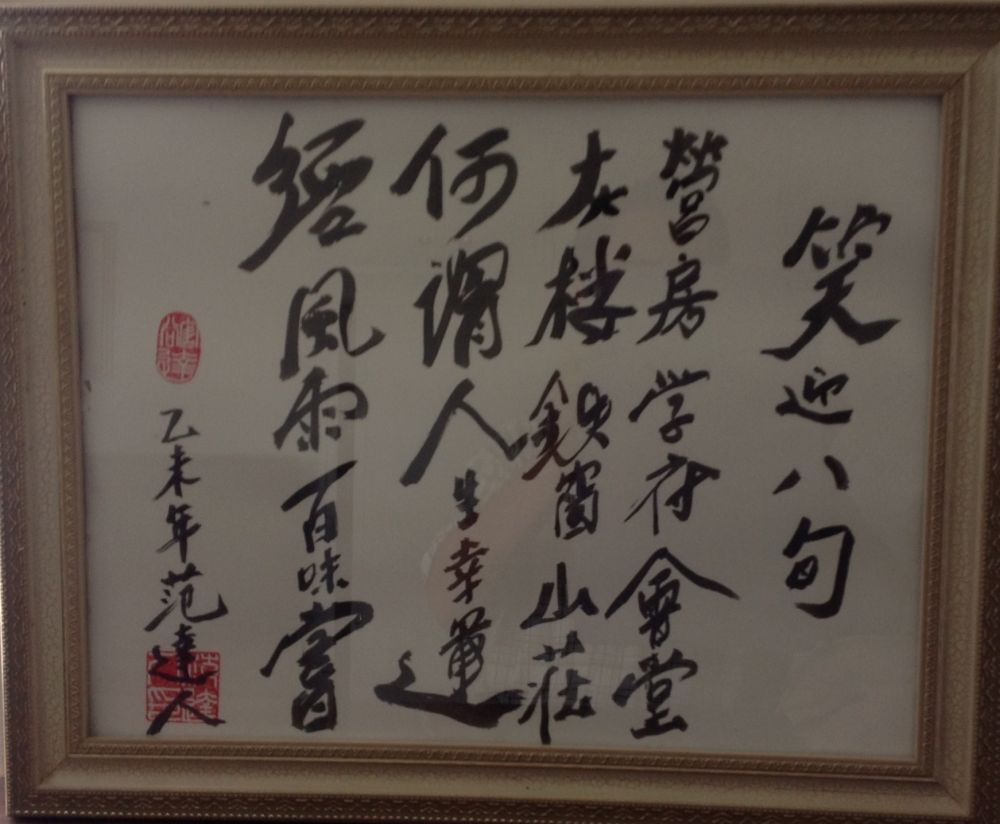 笑迎八旬
營房学府會堂
楼鉄窗山莊
何謂人生幸運
經風雨百味嘗
乙未年范達人